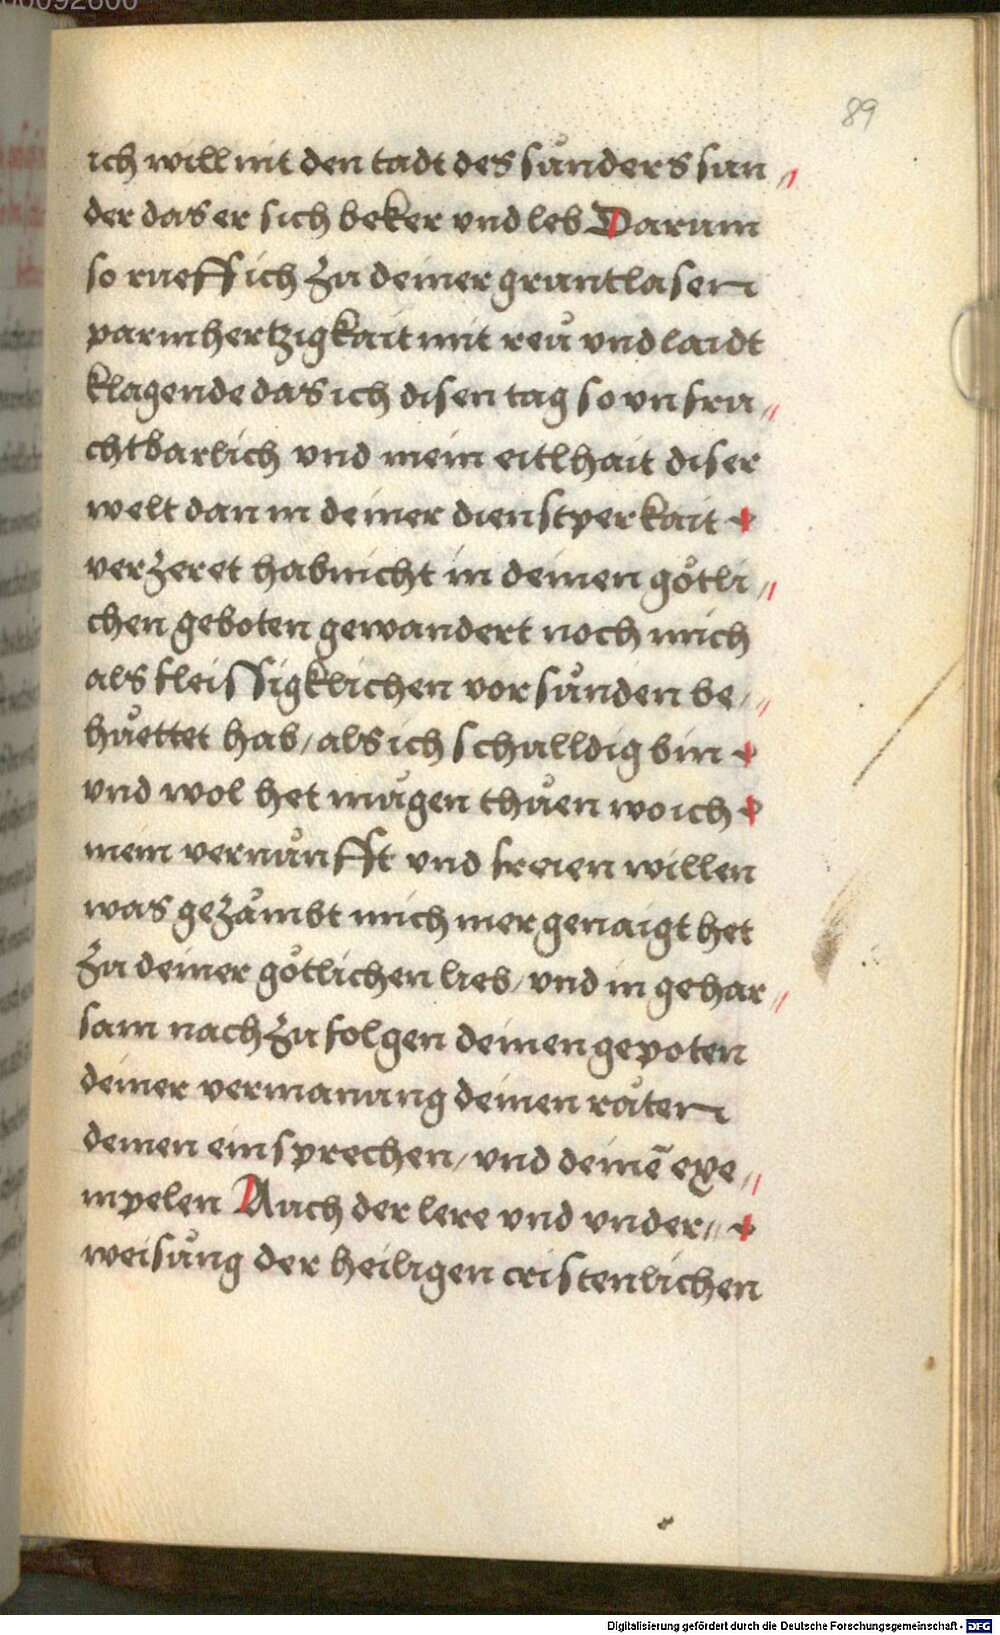 00092600
89
ich will nit den tadt des sůnders sun〃
der das er sich beker vnd leb Darum
so rueff ich zu deiner gruntlasen
parmhertzigkait mit reů vnd laidt
klagende das ich disen tag so vnfru〃
chtbarlich vnd mein eitlhait diser
welt dan in deiner dienstperkait
verzeret hab nicht in deinen gǒtli〃
chen geboten gewandert noch mich
als fleissigklichen vor sůnden be〃
hůettet hab/ als ich schulldig bin
vnd wol het můgen thůen wo ich
mein vernůnfft vnd freien willen
was gezåmbt mich mer genaigt het
zu deiner gǒtlichen lieb/ vnd in gehar〃
sam nach zu folgen deinen gepoten
deiner vermanung deinen råten
deinen einsprechen/ vnd deinē exe〃
mpelen Auch der lere vnd vnder〃
weisůng der heiligen cristenlichen
Digitalisierung gefördert durch die Deutsche Forschungsgemeinschaft - DFG